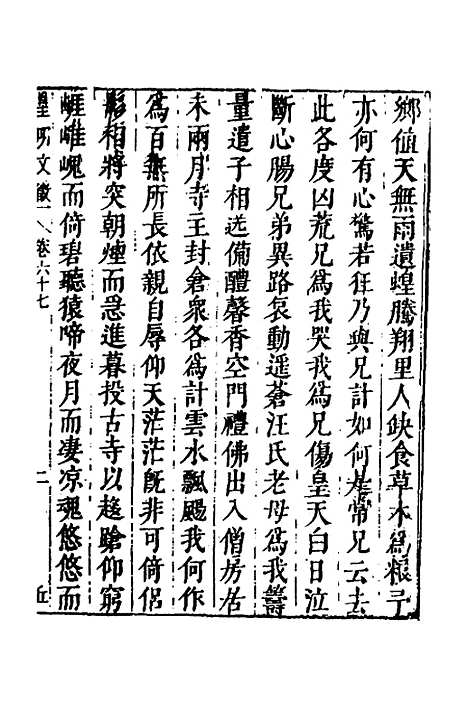 鄉值天無雨遺蝗騰翔里人缺食草木爲糧予
亦何有心驚若狂乃與兄計如何是常兄云去
此各度凶荒兄爲我哭我爲兄傷皇天白日泣
斷心腸兄弟異路哀動遥蒼汪氏老母爲我籌
量遣子相送備醴馨香空門禮佛出入僧房居
未兩月寺主封倉衆各爲計雲水飄颺我何作
爲百無所長依親自辱仰天茫茫旣非可倚侶
影相將突朝煙而急進暮投古寺以趍蹌仰窮
崕崔嵬而倚碧聽猿啼夜月而凄凉魂悠悠而
皇明文徵 卷六十七 二 丘